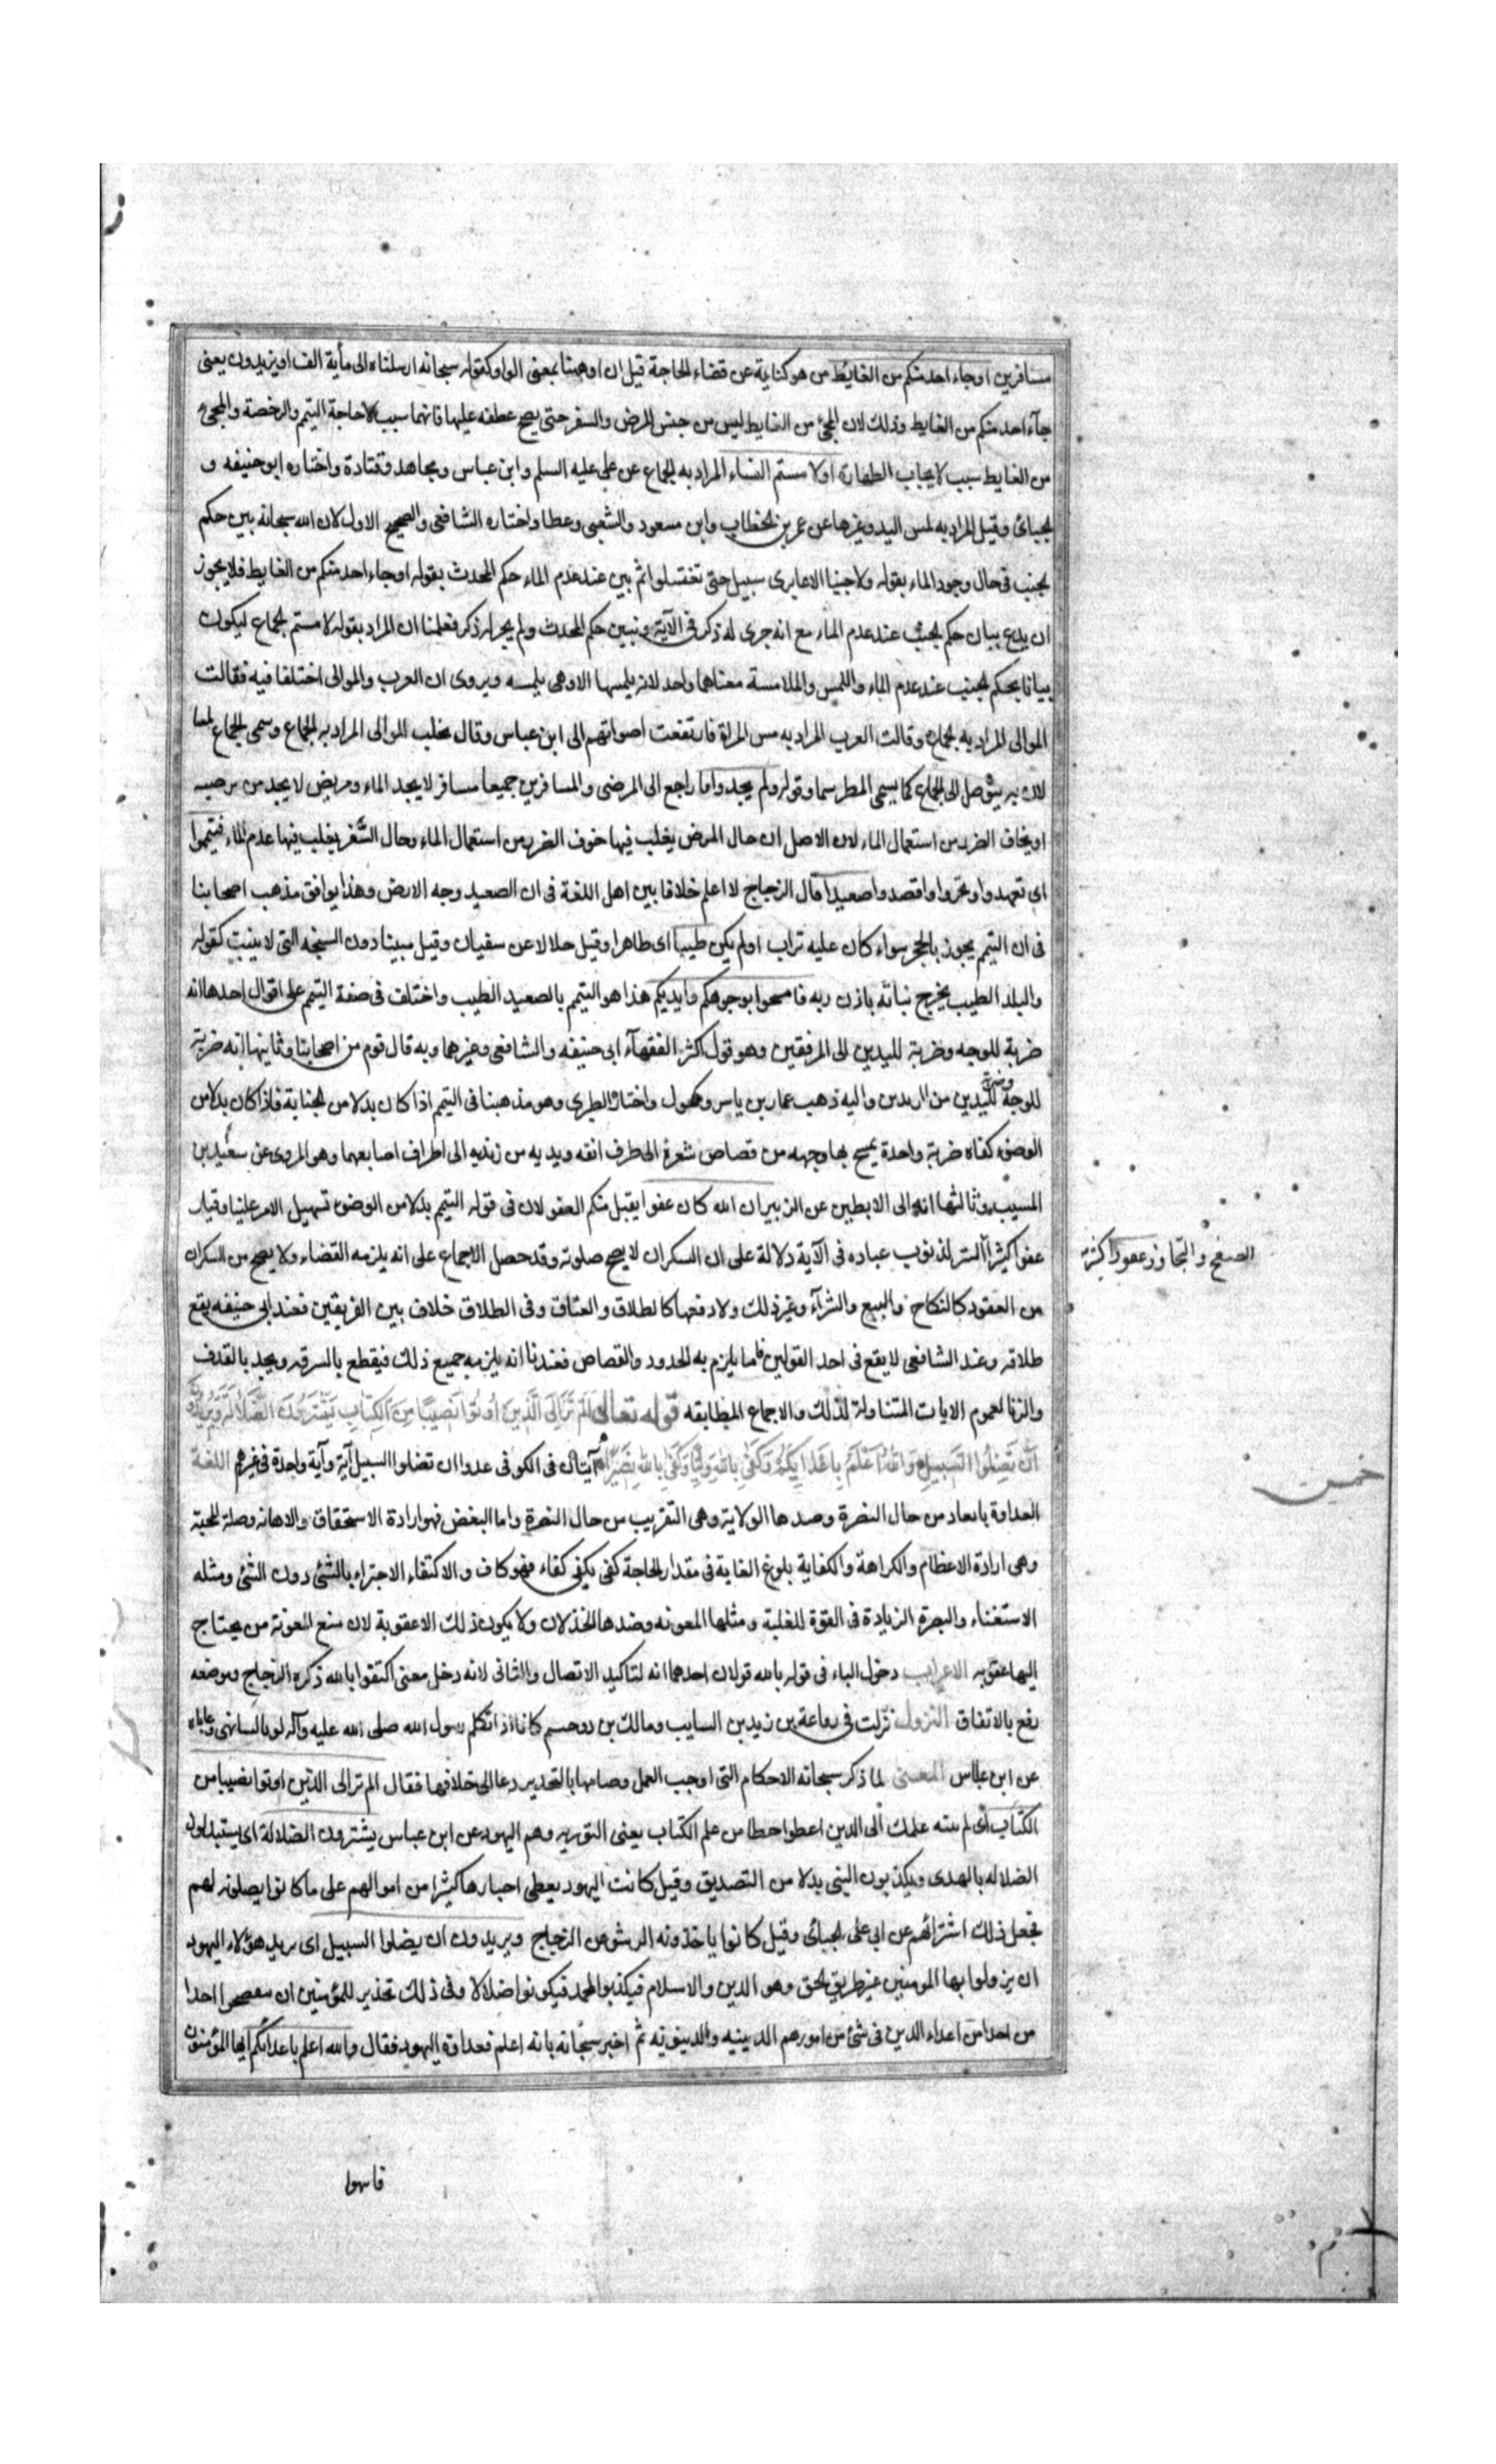 مسافرين او جاء احد منكم من الغايط من هو كناية عن قضاء الحاجة قيل ان او ههنا بمعنى الواو كقوله سبحانه ارسلناه الى مأية الف او يزيدون يعنى
جآء احد منكم من الغايط وذلك لان المجئ من الغايط ليس من جنس المرض والسفر حتى يصح عطفه عليها فانهما سبب لاباحة التيمم والرخصة والمجئ
من الغايط سبب لايجاب الطهارة او لا مستم النساء المراد به الجماع عن على عليه السلم وابن عباس ومجاهد وقتادة واختاره ابو حنيفه و
الجبائى وقيل المراد به لمس اليد وغيرها عن عمر بن الخطاب وابن مسعود والشعبى وعطا واختاره الشافعى والصحيح الاول لان الله سبحانه بين حكم
الجنب فى حال وجود الماء بقوله ولا جنبا الا عابرى سبيل حتى تغتسلوا ثم بين عند عدم الماء حكم المحدث بقوله او جاء احد منكم من الغايط فلا يجوز
ان يدع بيان حكم الجنب عند عدم الماء مع انه جرى له ذكر فى الآية ونبين حكم المحدث ولم يجر له ذكر فعلمنا ان المراد بقوله لا مستم الجماع ليكون
بيانا بحكم الجنب عند عدم الماء واللمس والملامسة معناهما واحد لانه يلمسها الا وهى يلمسه ويروى ان العرب والموالى اختلفا فيه فقالت
الموالى المراد به الجماع وقالت العرب المراد به مس المراة فارتفعت اصواتهم الى ابن عباس وقال غلب الموالى المراد به الجماع وسمى الجماع لمسا
لان به يتوصل الى الجماع كما يسمى المطر سما وقوله ولم يجدوا ما راجع الى المرضى والمسافرين جميعا مسافر لا يجد الماء ومريض لا يجد من
او يخاف الضرر من استعمال الماء لان الاصل ان حال المرض يغلب فيها خوف الضرر من استعمال الماء وحال السفر يغلب فيها عدم الماء فتيمموا
اى تعمدوا وتحروا واقصدوا صعيدا قال الزجاج لا اعلم خلافا بين اهل اللغة فى ان الصعيد وجه الارض وهذا يوافق مذهب اصحابنا
فى ان التيمم يجوز بالحجر سواء كان عليه تراب او لم يكن طيبا اى طاهرا وقيل حلالا عن سفيان وقيل مبيتا دون السبخه التى لا ينبت كقوله
والبلد الطيب يخرج نباته باذن ربه فامسحوا بوجوهكم وايديكم هذا هو التيمم بالصعيد الطيب واختلف فى صفة التيمم على اقوال احدها انه
ضربة للوجه وضربة لليدين الى المرفقين وهو قول اكثر الفقهآء ابى حنيفه والشافعى وغيرهما وبه قال قوم من اصحابنا وثانيها انه ضربة
للوجه وضربة لليدين من الزندين واليه ذهب عمار بن ياسر ومكحول واختاره الطبرى وهو مذهبنا فى التيمم اذا كان بدلا من الجنابة فاذا كان بدلا من
الوضوء كفاه ضربة واحدة يمسح بها وجهه من قصاص شعره الى طرف انفه ويديه من زنديه الى اطراف اصابعهما وهو المروى عن سعيد بن
المسيب وثالثها انه الى الابطين عن الزهرى ان الله كان عفوا يقبل منكم العفو لان فى قوله التيمم بدلا من الوضوء تسهيل الامر علينا وقيل
عفوا كثيرا الستر لذنوب عباده فى الآية دلالة على ان السكران لا يصح صلوته وقد حصل الاجماع على انه يلزمه القضاء ولا يصح من السكران
من العقود كالنكاح والبيع والشرآء وغير ذلك ولا دفعها كالطلاق والعتاق وفى الطلاق خلاف بين الفريقين فعند ابى حنيفه يقع
طلاقه وعند الشافعى لا يقع فى احد القولين فاما يلزم به الحدود والقصاص فعندنا انه يلزمه جميع ذلك فيقطع بالسرقه ويحد بالقذف
والزنا لعموم الايات المتناولة لذلك والاجماع المطابقه قوله تعالى اَلَمْ تَرَ اِلَى الَّذِينَ اُوتُوا نَصِيبًا مِنَ الْكِتَابِ يَشْتَرُونَ الضَّلَالَةَ وَيُرِيدُونَ
اَنْ تَضِلُّوا السَّبِيلَ وَاللهُ اَعْلَمُ بِاَعْدَائِكُمْ وَكَفَى بِاللهِ وَلِيًّا وَكَفَى بِاللهِ نَصِيرًا آيتان فى الكوفى عدوا ان تضلوا السبيل آية وآية واحدة فى غيرهم اللغة
العداوة بابعاد من حال النصرة وضدها الولاية وهى التقريب من حال النصرة واما البغض فهو ارادة الاستحقاق والاهانه وضده المحبة
وهى ارادة الاعظام والكراهة والكفاية بلوغ الغاية فى مقدار الحاجة كفى يكفى كفاء فهو كاف والاكتفاء الاجتزاء بالشئ دون الشئ ومثله
الاستغناء والنصرة الزيادة فى القوة للغلبة ومثلها المعونه وضدها الخذلان ولا يكون ذلك الا عقوبة لان منع المعونة من يحتاج
اليها عقوبه الاعراب دخول الباء فى قوله بالله قولان احدهما انه لتاكيد الاتصال والثانى لانه دخل معنى اكتفوا بالله ذكره الزجاج وموضعه
رفع بالاتفاق النزول نزلت فى رفاعة بن زيد بن السايب ومالك بن دخشم كانا اذا تكلم رسول الله صلى الله عليه وآله لويا لسانهما وعاباه
عن ابن عباس المعنى لما ذكر سبحانه الاحكام التى اوجب العمل وصلها بالتحذير دعا الى خلافها فقال الم تر الى الذين اوتوا نصيبا من
الكتاب اى لم ينته علمك الى الذين اعطوا حظا من علم الكتاب يعنى التوريه وهم اليهود عن ابن عباس يشترون الضلالة اى يستبدلون
الضلاله بالهدى ويكذبون النبى بدلا من التصديق وقيل كانت اليهود يعطى احبارها كثيرا من اموالهم على ما كانوا يصلونه لهم
فجعل ذلك اشترائهم عن ابى على الجبائى وقيل كانوا ياخذونه الرشو عن الزجاج ويريدون ان يضلوا السبيل اى يريد هؤلاء اليهود
ان يزولوا بها المومنين عن طريق الحق وهو الدين والاسلام فيكذبوا لمحمد فيكونوا ضلالا وفى ذلك تحذير للمؤمنين ان احدا
من احد من اعداء الدين فى شئ من امورهم الدينيه والدينويه ثم اخبر سبحانه بانه اعلم بعداوة اليهود فقال والله اعلم باعدائكم ايها المؤمنون
الصفح والتجاوز عفورا كثيرة
فانهوا